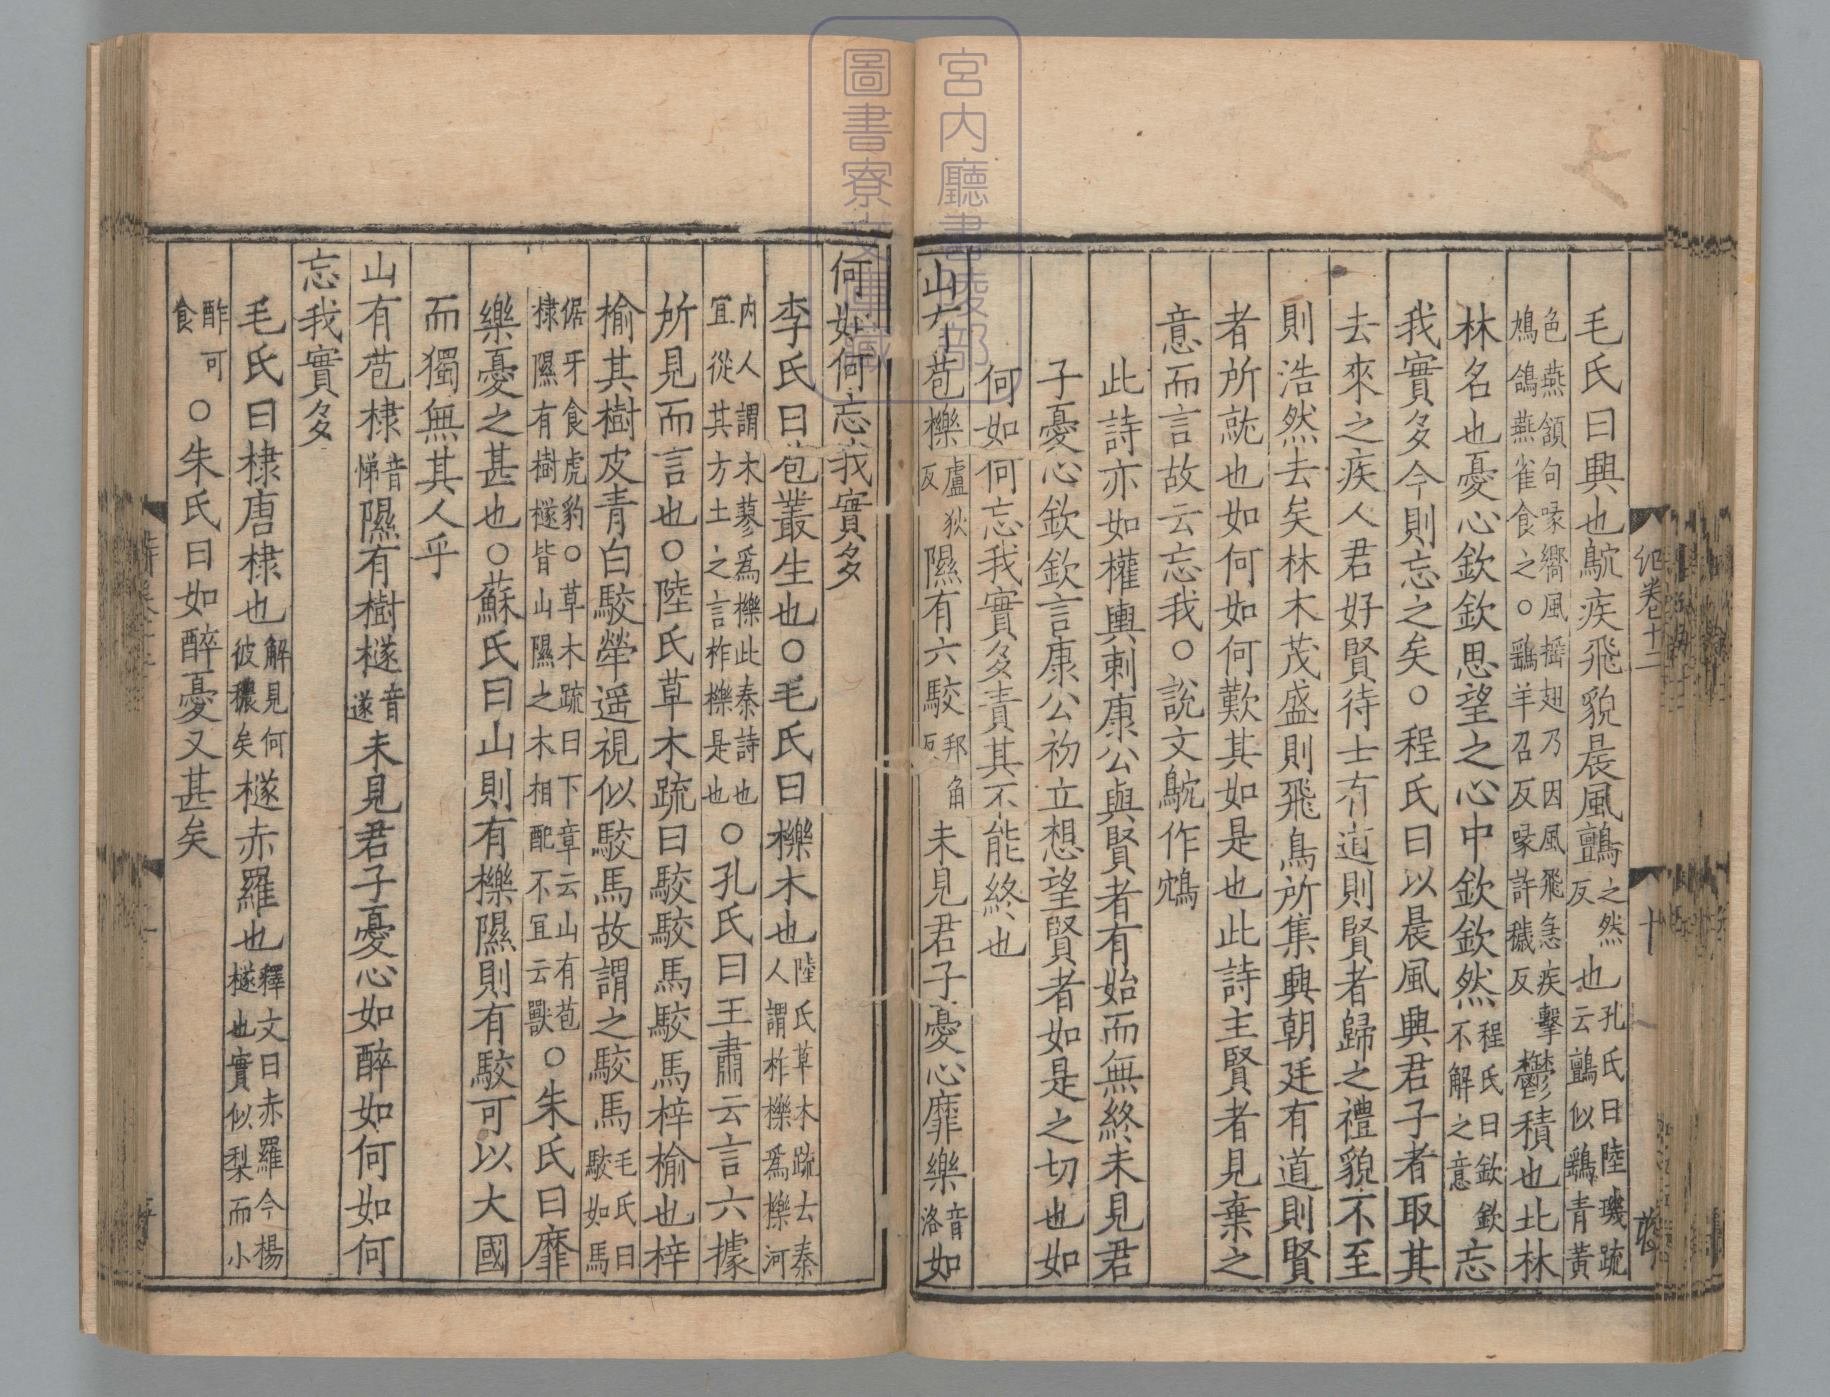 毛氏曰興也鴥疾飛貌晨風鸇之然反也孔氏曰陸璣疏云鸇似鷂青黃
色燕頷句喙嚮風搖翅乃因風飛急疾擊鳩鴿燕雀食之○鷂羊召反喙許穢反鬱積也北林
林名也憂心欽欽思望之心中欽欽然程氏曰欽欽不解之意忘
我實多今則忘之矣○程氏曰以晨風興君子者取其
去來之疾人君好賢待士有道則賢者歸之禮貌不至
則浩然去矣林木茂盛則飛鳥所集興朝廷有道則賢
者所就也如何如何歎其如是也此詩主賢者見棄之
意而言故云忘我○說文鴥作鴪
此詩亦如權輿刺康公與賢者有始而無終未見君
子憂心欽欽言康公初立想望賢者如是之切也如
何如何忘我實多責其不能終也
山有苞櫟盧狄反隰有六駮邦角反未見君子憂心靡樂音洛如
何如何忘我實多
李氏曰苞叢生也○毛氏曰櫟木也陸氏草木疏云秦人謂柞櫟爲櫟河
內人謂木蓼爲櫟此秦詩也宜從其方土之言柞櫟是也○孔氏曰王肅云言六據
所見而言也○陸氏草木疏曰駮駮馬駮馬梓榆也梓
榆其樹皮青白駮犖遥視似駮馬故謂之駮馬毛氏曰駮如馬
倨牙食虎豹○草木疏曰下章云山有苞棣隰有樹檖皆山隰之木相配不宜云獸○朱氏曰靡
樂憂之甚也○蘇氏曰山則有櫟隰則有駮可以大國
而獨無其人乎
山有苞棣音悌隰有樹檖音遂未見君子憂心如醉如何如何
忘我實多
毛氏曰棣唐棣也解見何彼穠矣檖赤羅也釋文曰赤羅今楊檖也實似梨而小
酢可食○朱氏曰如醉憂又甚矣